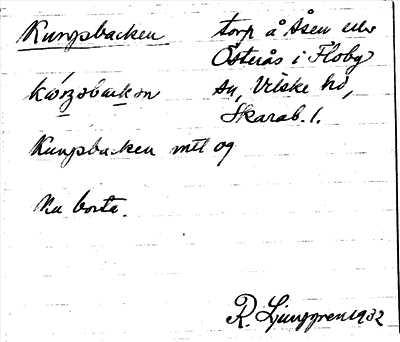 Kungsbacken torp å Åsen eller
Österås i Floby
sn, Vilske hd,
Skarab. l.
Kungsbacken mtl og
Nu borta.
R. Ljunggren 1932